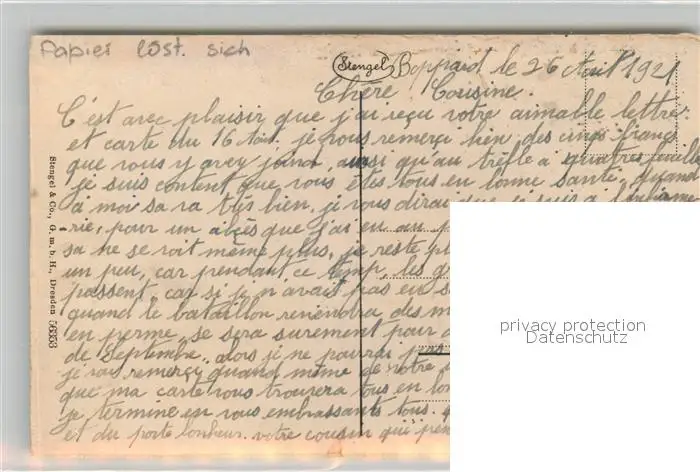 Papier löst. sich
Stengel
Boppard le 26 Aout 1921
Chère Cousine.
C'est avec plaisir que j'ai reçu votre aimable lettre
et carte du 16 Aout. je vous remerçi bien des cinq francs
que vous y avez joind, aussi qu'au trèfle à quatres feuilles
je suis content que vous êtes tous en bonne santé, quand
à moi sa va très bien, je vous dirai que je suis à l'infirme
rie, pour un abçès que j'ai eu au
sa ne se voit même plus, je reste
un peu, car prendant ce temp, les
passent, car si je n'avait pas eu
quand le bataillon reviendra des
en perme, se sera surement pour
de Septembre, alors je ne pourrai
je vous remerçi quand même de votre
que ma carte vous trouvera tous en
je termine en vous embrassants tous.
et du porte bonheur. votre cousin qui
Stengel & Co., G. m. b. H., Dresden 56353
privacy protection
Datenschutz